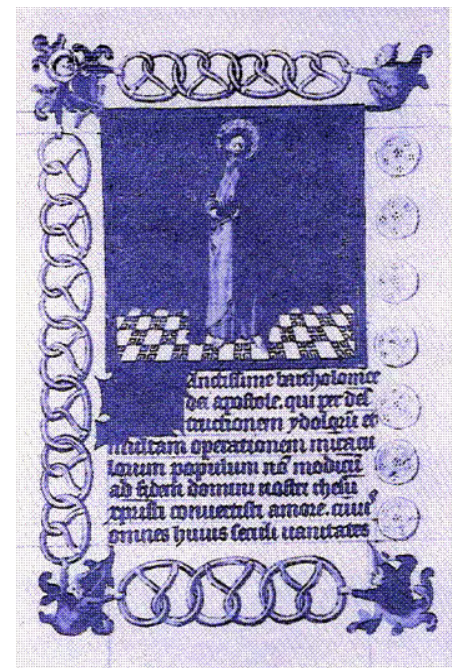 anctissime bartholomee
dei apostole. qui per des
tructionem ydolorū et
multam operationem miracu
lorum populum nō modicū
ad fidem domini nostri ihesu
xpristi convertisti amore. cuius
omnes huius seculi vanitates